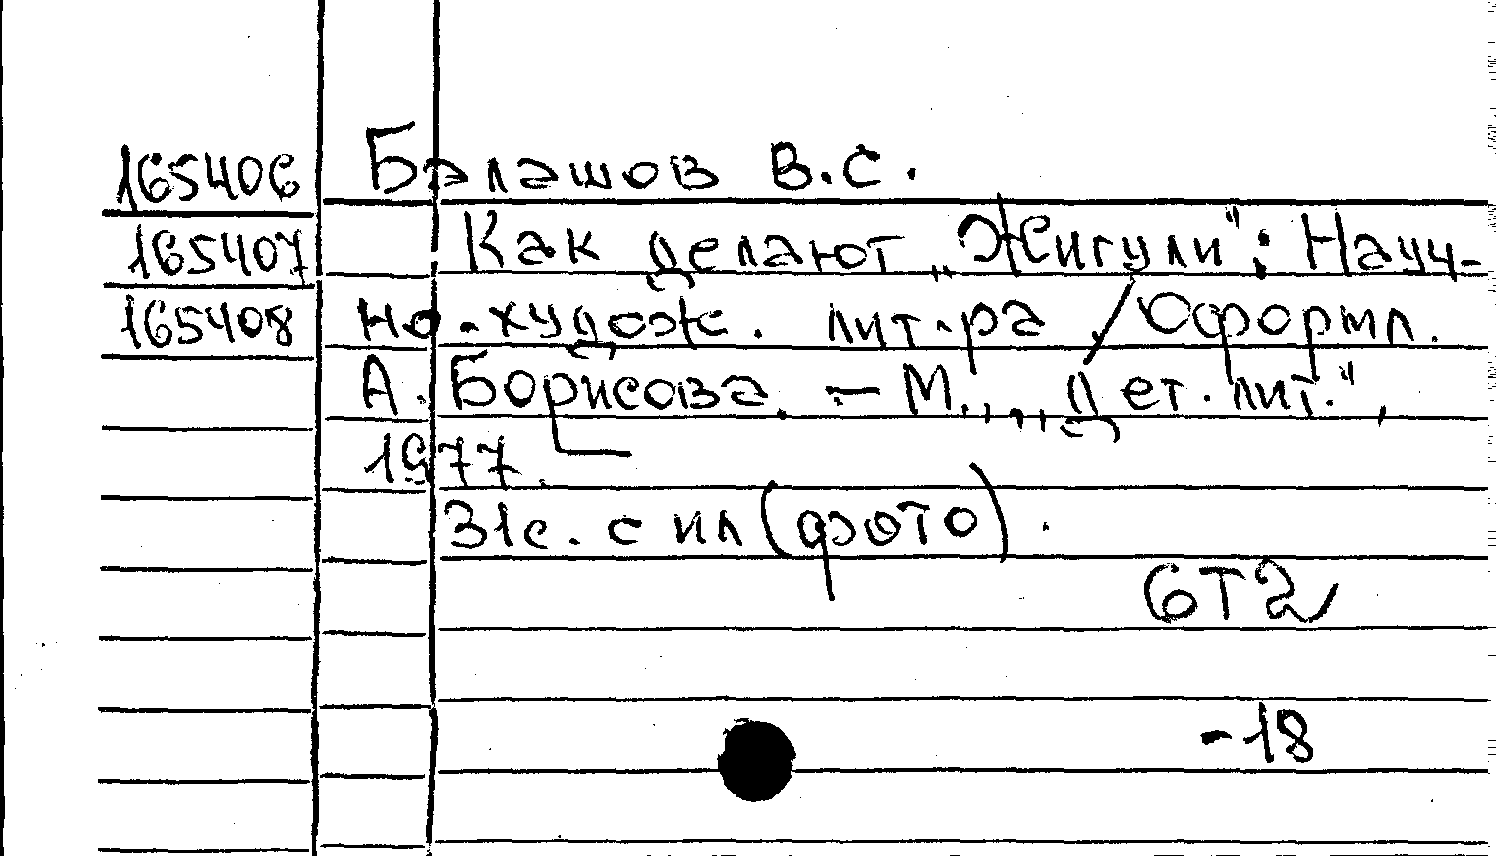 165406 Балашов В.С.
165407 Как делают „Жигули": Науч-
165408 но.-худож. лит-ра / Оформл.
А. Борисова. – М., „Дет. лит.",
1977.
31с. с ил (фото).
6Т2
-18